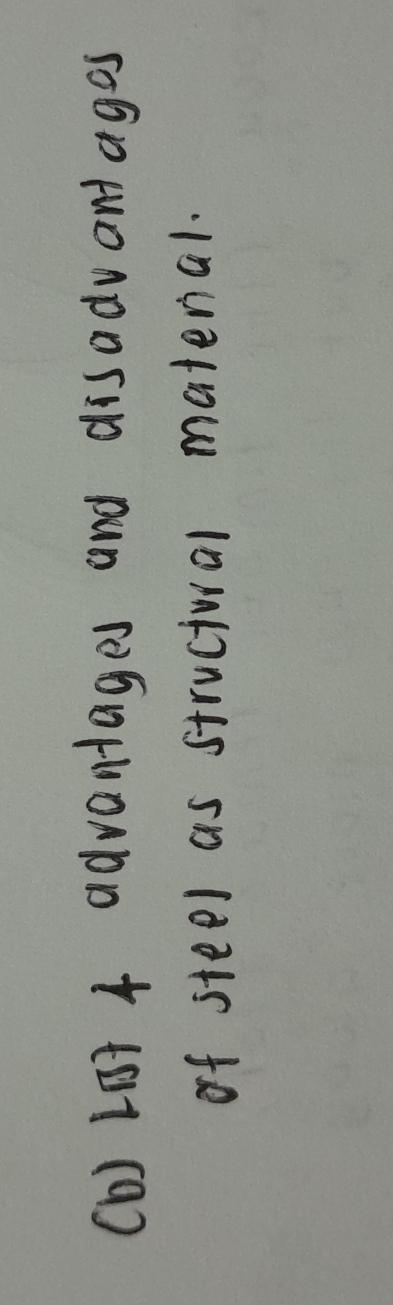 (b) List 4 advantages and disadvantages
of steel as structural material.